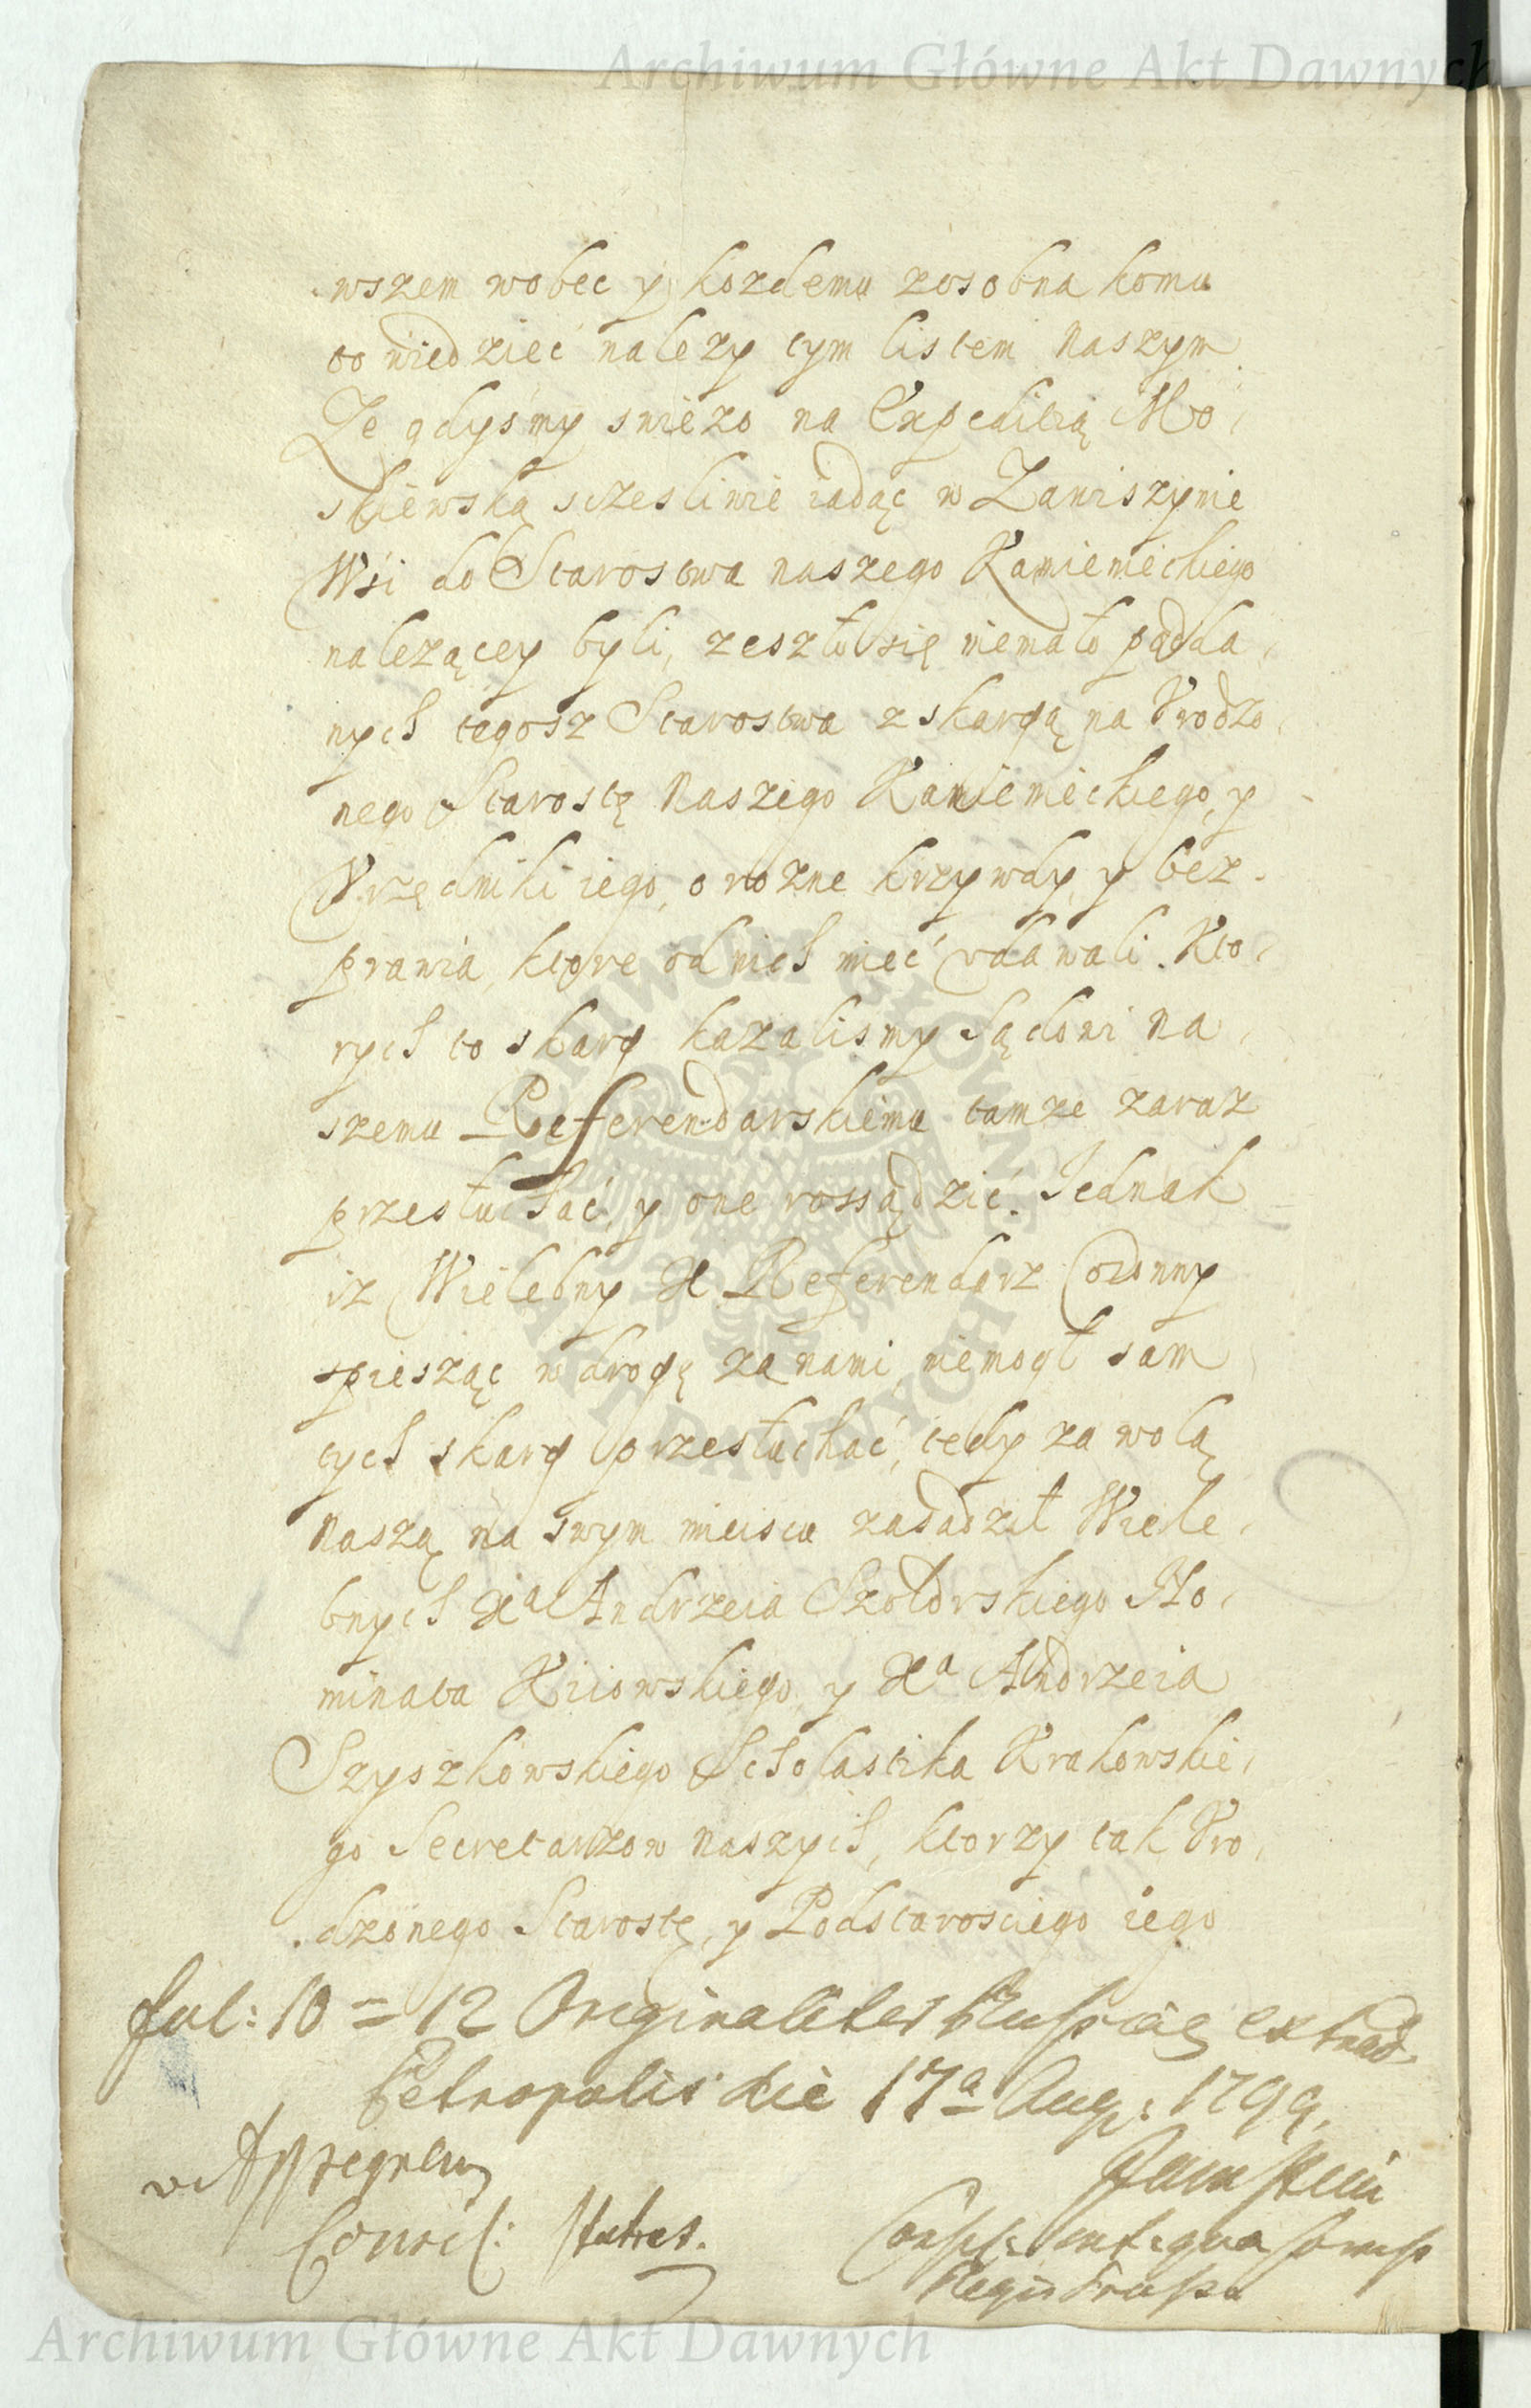 Archiwum Główne Akt Dawnych
wszem wobec y kozdemu zosobna komu
to wiedzieć nalezy tym listem naszym
Ze gdysmy swiezo na Expeditią Mo,
skiewską sczesliwie iadąc w Zawiszynie
Wsi do Starostwa naszego Kamienieckiego
nalezącey byli, zeszło się niemało podda,
nych tegosz Starostwa z skargą na Vrodzo,
nego Starostę naszego Kamienieckiego, y
Vrzędniki iego, o rozne krzywdy y bez,
prawia, ktore od nich mieć vdawali. Kto,
rych to skarg kazalismy Sądowi na,
szemu Referendarskiemu tamze zaraz
przesłuchać, y one rossądzić. Jednak
iz Wielebny X Referendarz Coronny
spiesząc w drogę za nami, niemogł sam
tych skarg przesłuchać, tedy za wolą
naszą na swym mieiscu zasadził Wiele,
bnych Xa Andrzeia Szołdrskiego No,
minata Kiiowskiego, y Xa Andrzeia
Szyszkowskiego Scholastika Krakowskie,
go Secretarzow naszych, ktorzy tak Vro,
dzonego Starostę, y Podstarosciego iego
fol: 10 = 12 Originaliter Russiae extrad.
Petropolis die 17a Aug: 1799.
Consil: Status.
Archiwum Główne Akt Dawnych